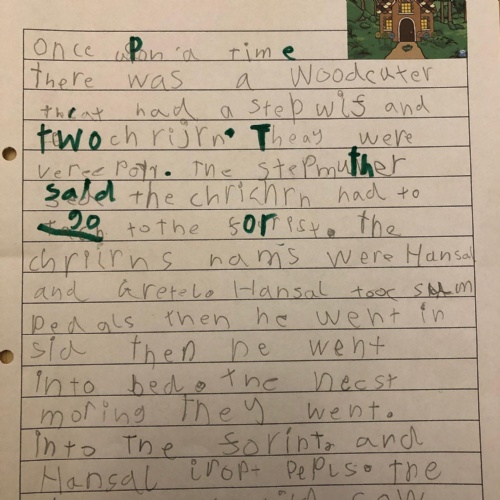 once upon a time
there was a woodcuter
that had a step wif and
two chrijrn. Theay were
veree pory. The stepmuther
said the chrichrn had to
go to the sorrist. the
chriirns nam's were Hansal
and Gretel. Hansal tooc sum
pedals then he went in
sid then he went
into bed. the necst
moring they went.
into The sorint. and
Hansal dropt pepls. the